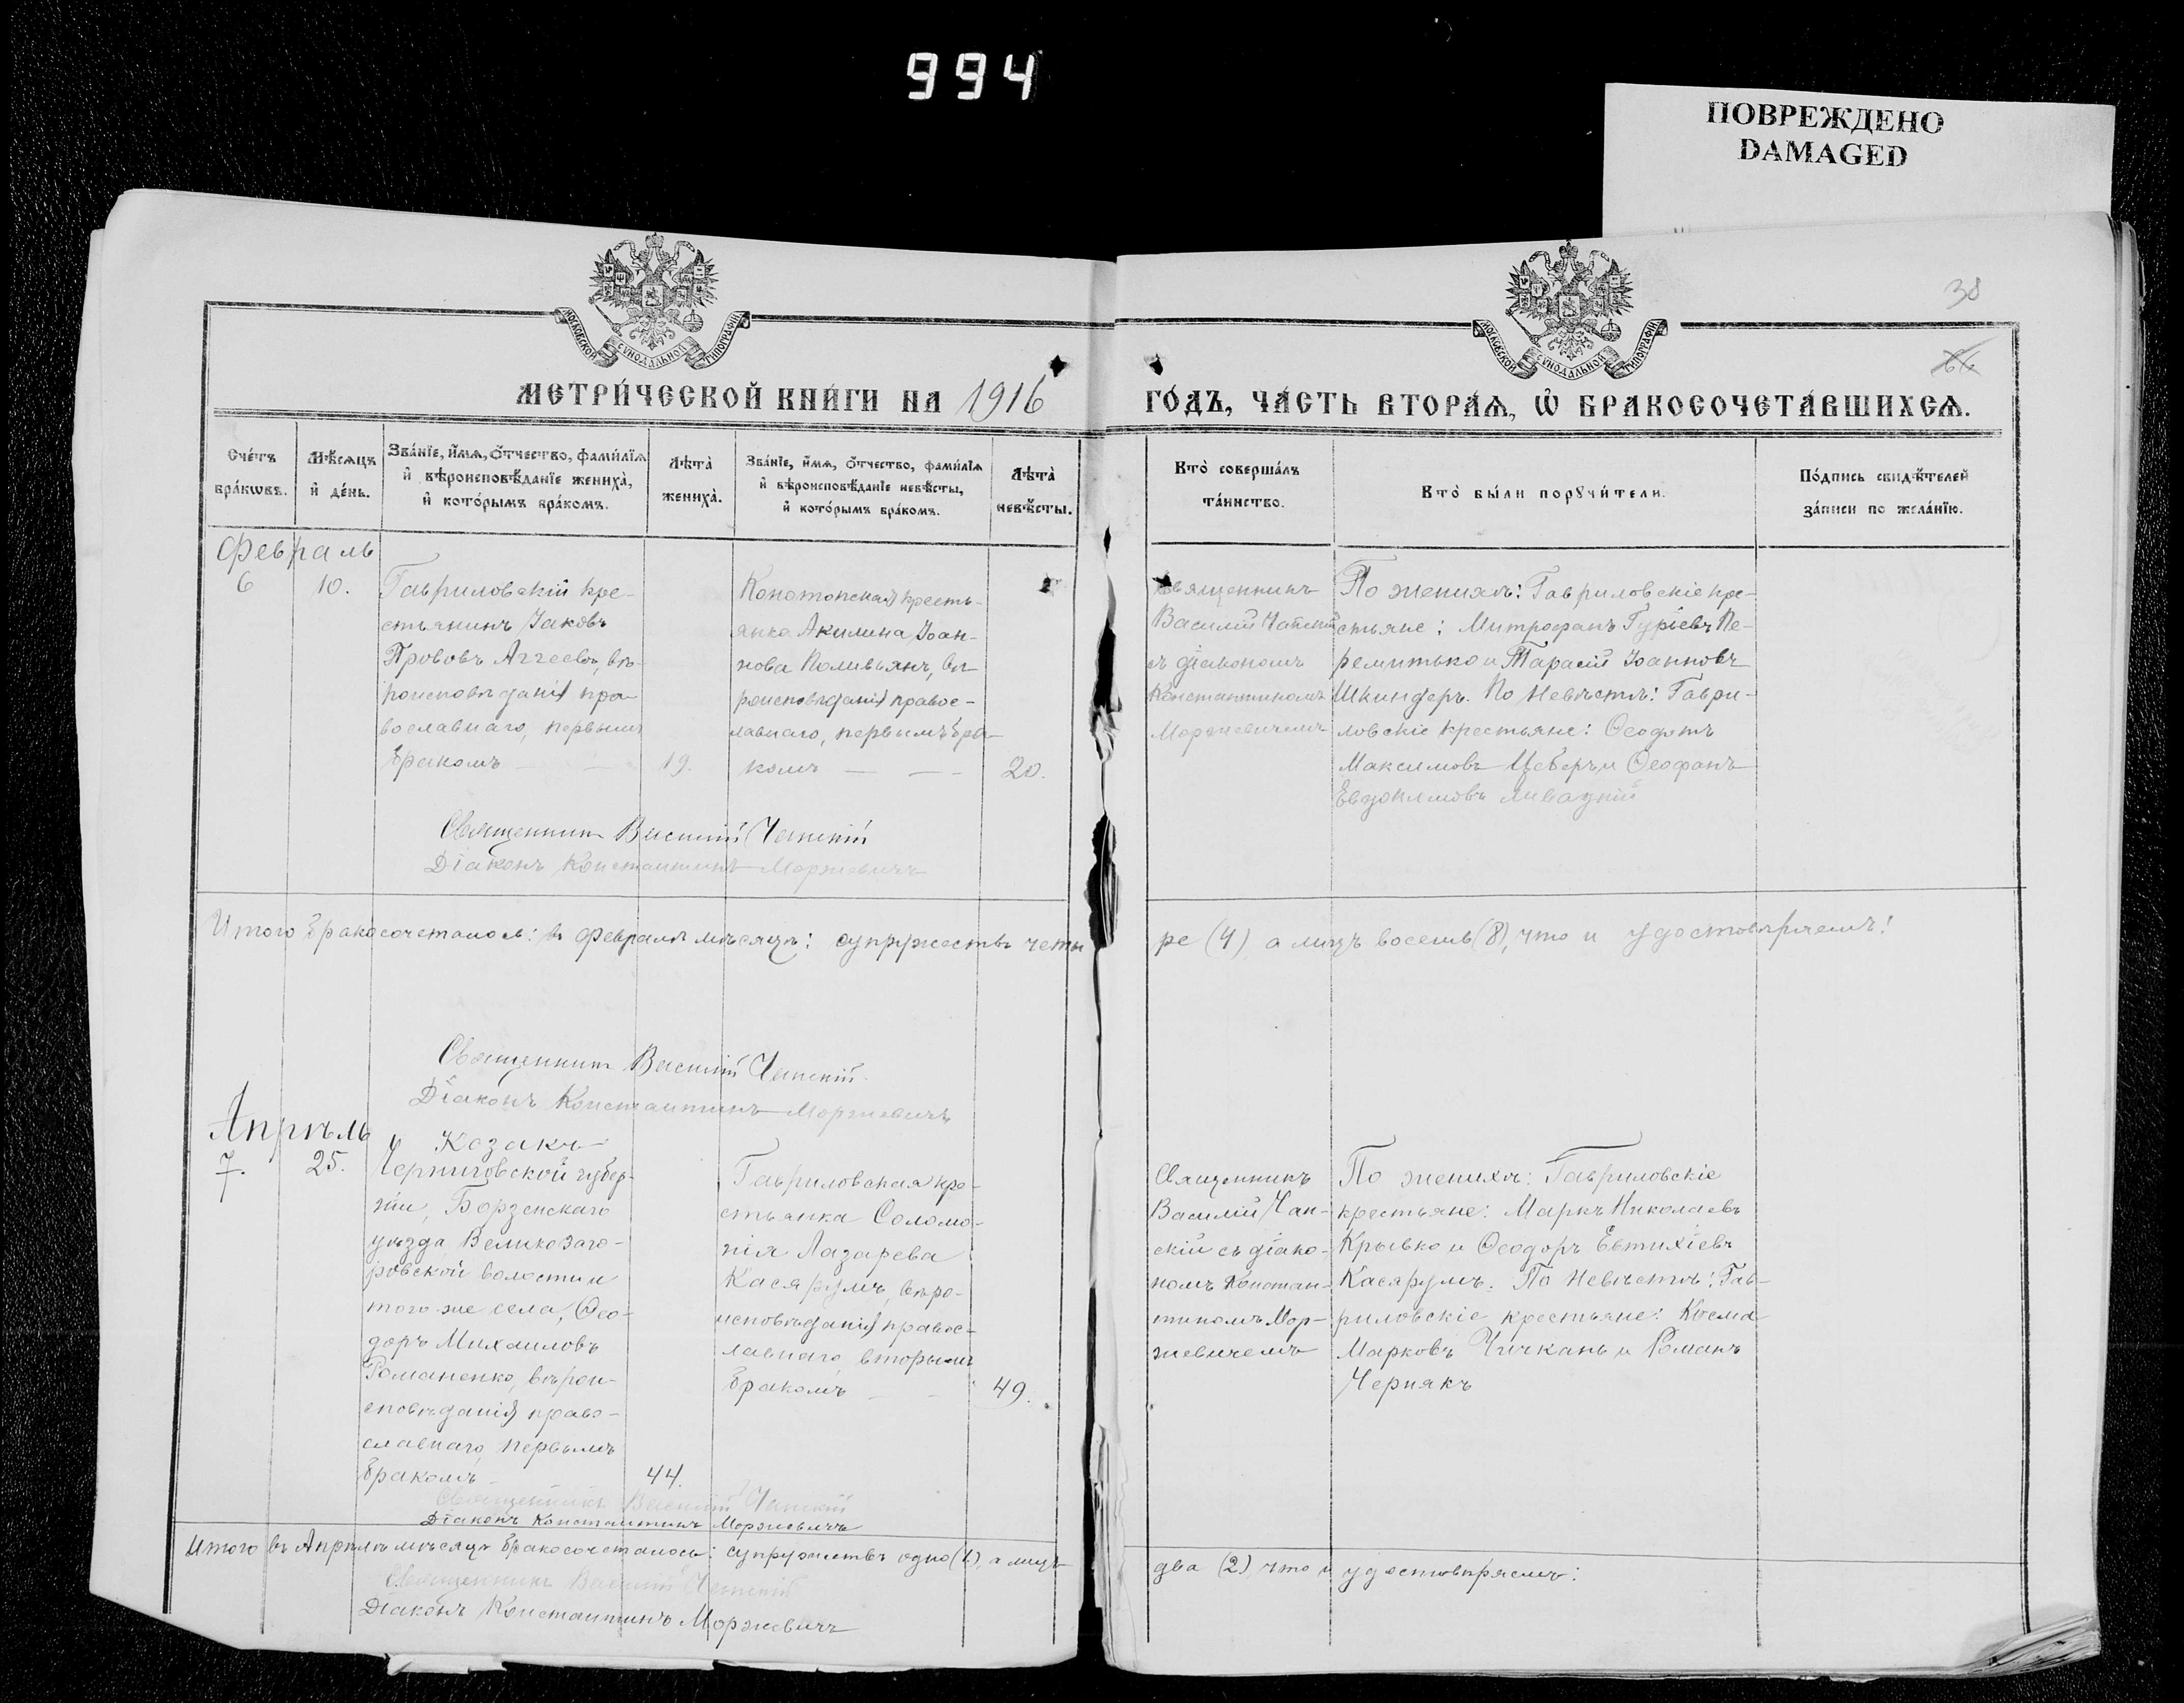 994
ПОВРЕЖДЕНО
DAMAGED
38
МОСКОВСКОЙ СѴНОДАЛЬНОЙ ТИПОГРАФІИ
МОСКОВСКОЙ СѴНОДАЛЬНОЙ ТИПОГРАФІИ
МЕТРИ́ЧЕСКОЙ КНИ́ГИ НА 1916 ГО́ДЪ, ЧА́СТЬ ВТОРА́Ѧ, Ѡ҆ БРАКОСОЧЕТА́ВШИХСѦ.
Сче́тъ
бра́кѡвъ.
Мѣ́сѧцъ
и҆ де́нь.
Зва́нїе, и҆́мѧ, ѻ҆́тчество, фами́лїѧ
и҆ вѣроисповѣ́данїе жениха̀,
и҆ кото́рымъ бра́комъ.
Лѣта̀
жениха̀.
Зва́нїе, и҆́мѧ, ѻ҆́тчество, фами́лїѧ
и҆ вѣроисповѣ́данїе невѣ́сты,
и҆ кото́рымъ бра́комъ.
Лѣта̀
невѣ́сты.
Кто̀ соверша́лъ
та́инство.
Кто̀ бы́ли порꙋчи́тели.
По́дпись свидѣ́телей
за́писи по жела́нїю.
Февраль
6
10.
Гавриловскій кре-
стьянинъ Іаковъ
Прововъ Аггеевъ, вѣ-
роисповѣданія пра-
вославнаго, первымъ
бракомъ — —
19.
Конотопская кресть-
янка Акилина Іоан-
нова Поливьянъ, вѣ-
роисповѣданія правос-
лавнаго, первымъ бра-
комъ — — —
20.
Священникъ
Василій Чапскій
съ діакономъ
Константиномъ
Моржевичемъ
По женихѣ: Гавриловскіе кре-
стьяне: Митрофанъ Гуріевъ Пе-
ремитько и Тарасій Іоанновъ
Шкиндеръ. По невѣстѣ: Гаври-
ловскіе крестьяне: Ѳеодотъ
Максимовъ Цеберъ и Ѳеофанъ
Евдокимовъ Ливацкій
Священникъ Василій Чапскій
Діаконъ Константинъ Моржевичъ
Итого бракосочеталось: въ февралѣ мѣсяцѣ: супружествъ четы
ре (4) а лицъ восемь (8), что и удостовѣряемъ!
Священникъ Василій Чапскій
Діаконъ Константинъ Моржевичъ
Апрѣль
7.
25.
Козакъ
Черниговской губер-
ніи, Борзенскаго
уѣзда Великозаго-
ровской волости и
того-же села, Ѳео-
доръ Михаиловъ
Романенко, вѣрои-
сповѣданія право-
славнаго, первымъ
бракомъ
44.
Гавриловская кре-
стьянка Соломо-
нія Лазарева
Касярумъ, вѣро-
исповѣданія правос-
лавнаго, вторымъ
бракомъ — —
49.
Священникъ
Василій Чап-
скій съ діако-
номъ Констан-
тиномъ Мор-
жевичемъ
По женихѣ: Гавриловскіе
крестьяне: Маркъ Николаевъ
Крывко и Ѳеодоръ Евтихіевъ
Касярумъ. По невѣстѣ: Гав-
риловскіе крестьяне: Косма
Марковъ Чичканъ и Романъ
Чернякъ
Священникъ Василій Чапскій
Діаконъ Константинъ Моржевичъ
Итого въ Апрѣлѣ мѣсяцѣ бракосочеталось: супружествъ одно (1), а лицъ
два (2) что и удостовѣряемъ:
Священникъ Василій Чапскій
Діаконъ Константинъ Моржевичъ